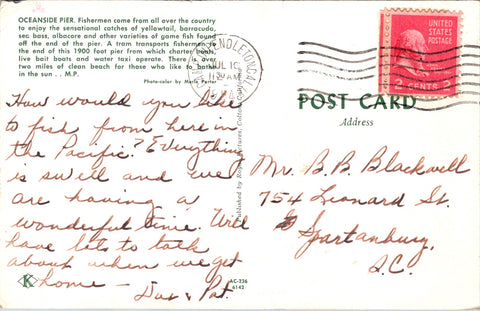 OCEANSIDE PIER. Fishermen come from all over the country
to enjoy the sensational catches of yellowtail, barracuda,
sea bass, albacore and other varieties of game fish found
off the end of the pier. A tram transports fishermen to
the end of this 1900 foot pier from which charter boats,
live bait boats and water taxi operate. There is over
two miles of clean beach for those who like to bathe
in the sun . . M.P.
Photo-color by Merle Porter
UNITED STATES
POSTAGE
2 CENTS 2
JUL 10
AM
POST CARD
Address
How would you like
to fish from here in
the Pacific? Everything
is swell and we
are having a
wonderful time. Will
have lots to talk
about when we get
home –
& Pat.
Mr. B. B. Blackwell
754 Leonard St.
Spartanburg,
S.C.
Published by Royal Pictures, Colton, California
K
AC-236
6142